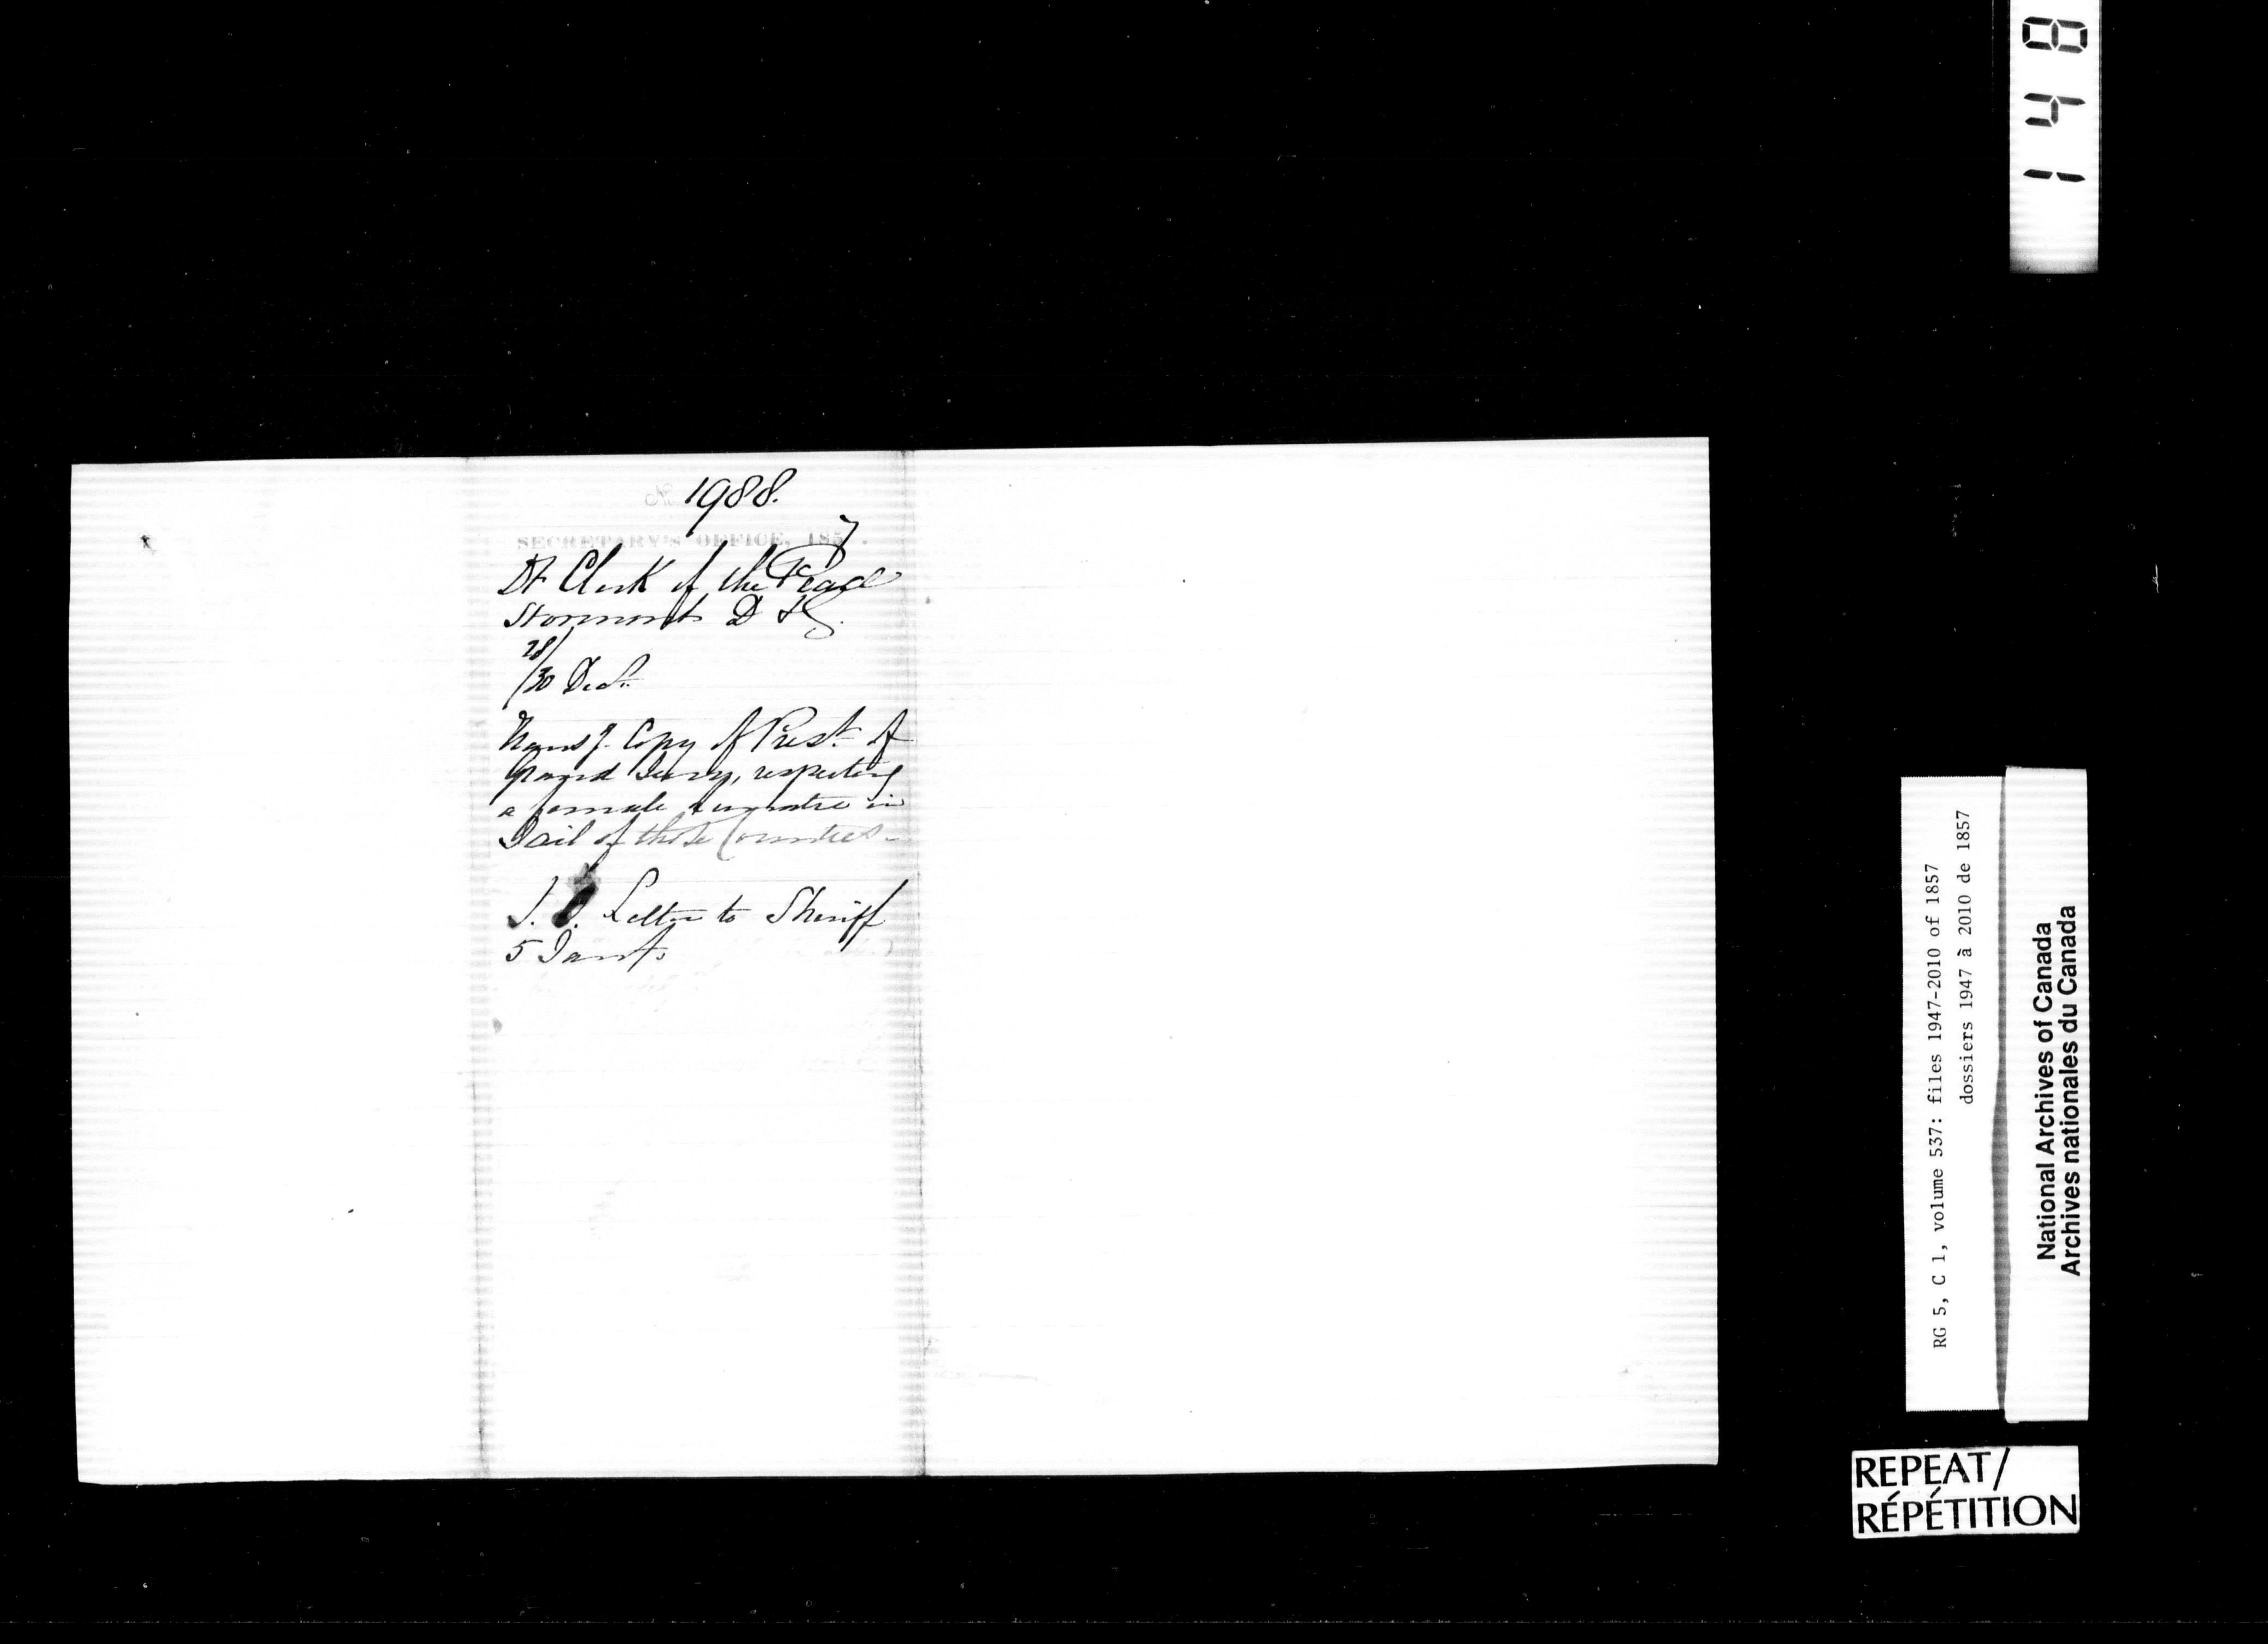 No 1988.
SECRETARY'S OFFICE, 1857.
Dy Clerk of the Peace
Stormont D & G.
28/
/30 Decr.
Transg. Copy of Prest. of
Grand Jury, respecting
a female lunatic in
Jail of those Counties-
Letter to Sheriff
5 Jany.
148
RG 5, C 1, volume 537: files 1947-2010 of 1857
dossiers 1947 à 2010 de 1857
National Archives of Canada
Archives nationales du Canada
REPEAT/
RÉPÉTITION